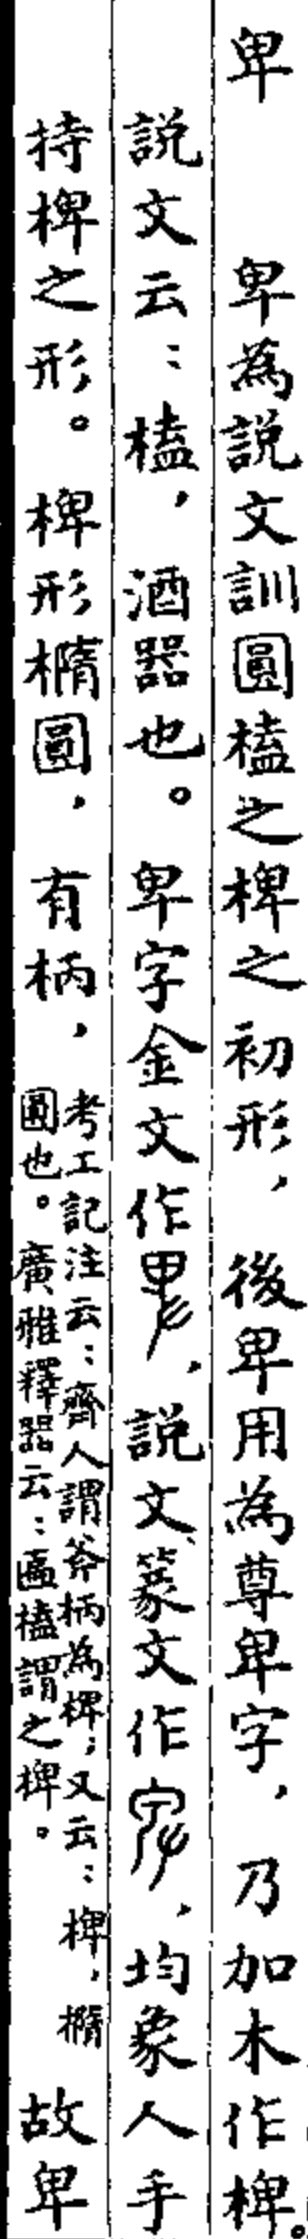 卑　卑為説文訓圓榼之椑之初形，後卑用為尊卑字，乃加木作椑。
説文云：榼，酒器也。卑字金文作，説文篆文作，均象人手
持椑之形。椑形橢圓，有柄，考工記注云：齊人謂斧柄為椑；又云：椑，橢圓也。廣雅釋器云：匾榼謂之椑。故卑